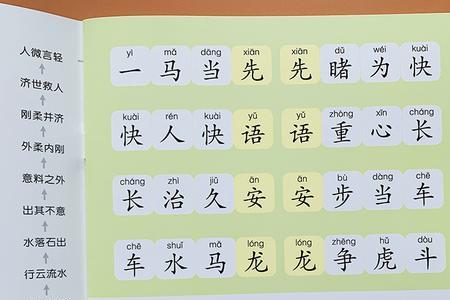 人微言轻
济世救人
刚柔并济
外柔内刚
意料之外
出其不意
水落石出
行云流水
yì mǎ dāng xiān xiān dǔ wéi kuài
一马当先 先睹为快
kuài rén kuài yǔ yǔ zhòng xīn cháng
快人快语 语重心长
cháng zhì jiǔ ān ān bù dàng chē
长治久安 安步当车
chē shuǐ mǎ lóng lóng zhēng hǔ dòu
车水马龙 龙争虎斗